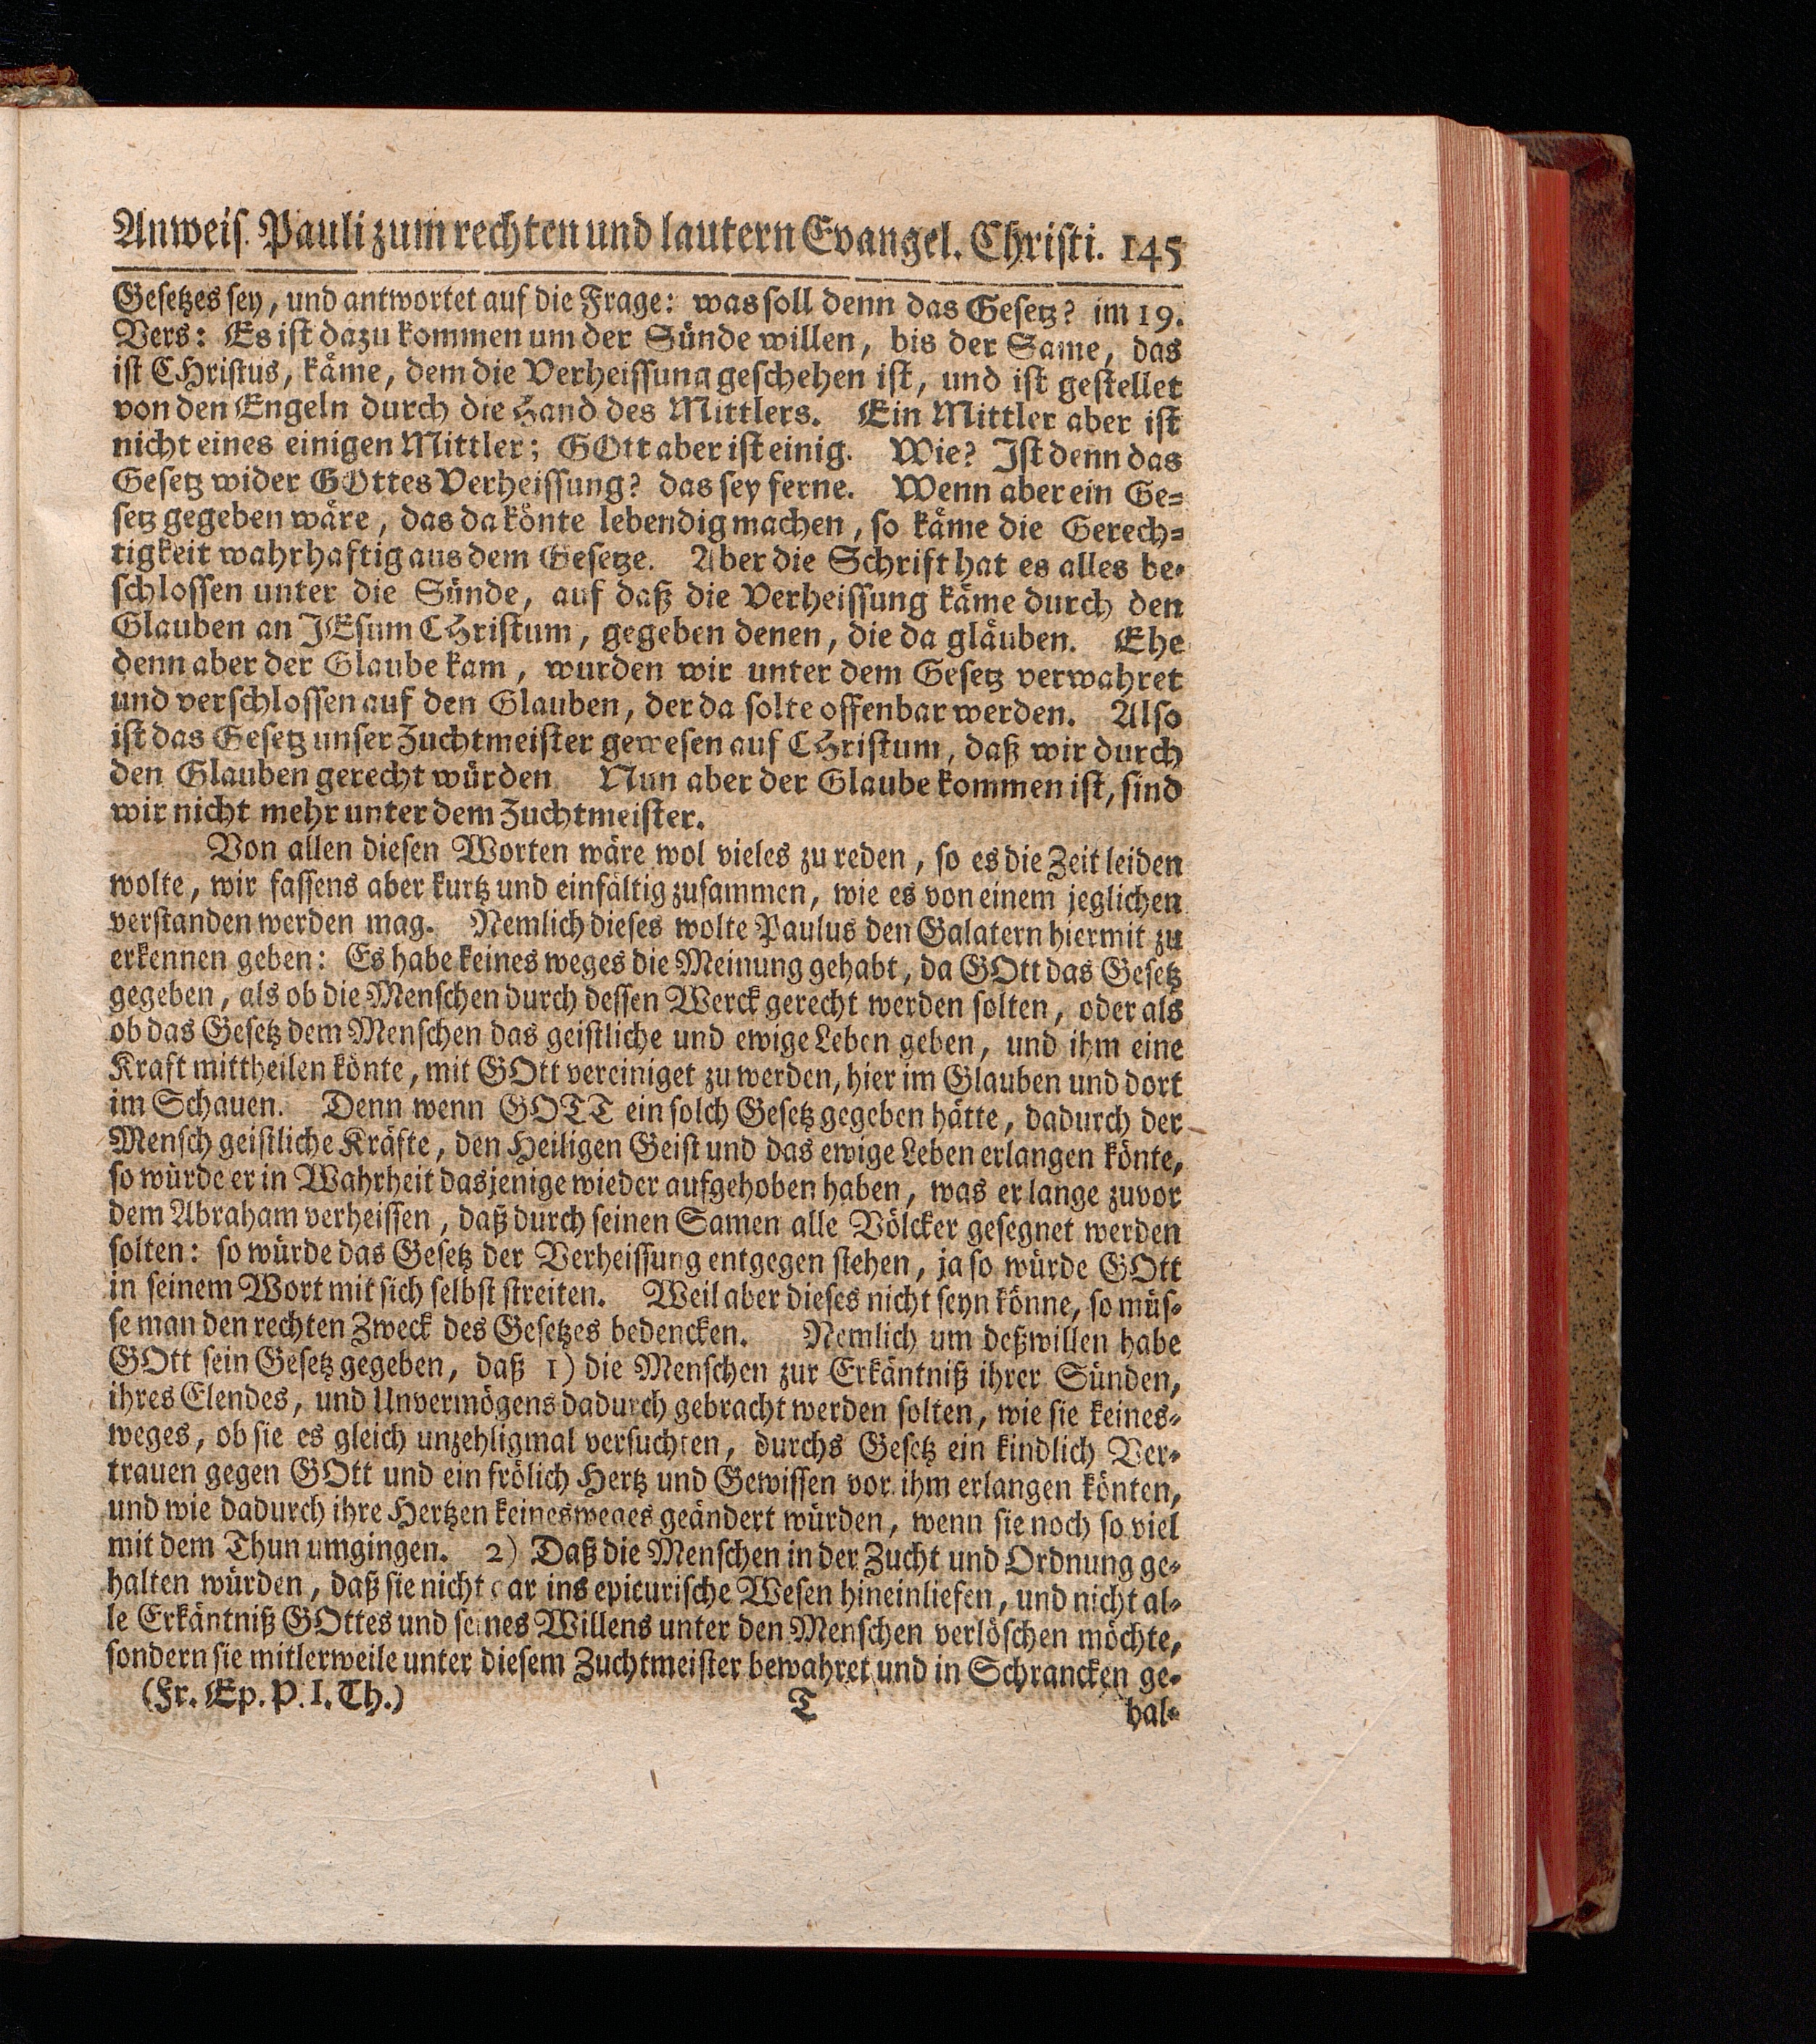 Anweis. Pauli zum rechten und lautern Evangel. Christi. 145
Gesetzes sey, und antwortet auf die Frage: was soll denn das Gesetz? im 19.
Vers: Es ist dazu kommen um der Sünde willen, bis der Same, das
ist CHristus, käme, dem die Verheissung geschehen ist, und ist gestellet
von den Engeln durch die Hand des Mittlers. Ein Mittler aber ist
nicht eines einigen Mittler; GOtt aber ist einig. Wie? Ist denn das
Gesetz wider GOttes Verheissung? das sey ferne. Wenn aber ein Ge-
setz gegeben wäre, das da könte lebendig machen, so käme die Gerech-
tigkeit wahrhaftig aus dem Gesetze. Aber die Schrift hat es alles be-
schlossen unter die Sünde, auf daß die Verheissung käme durch den
Glauben an JEsum CHristum, gegeben denen, die da gläuben. Ehe
denn aber der Glaube kam, wurden wir unter dem Gesetz verwahret
und verschlossen auf den Glauben, der da solte offenbar werden. Also
ist das Gesetz unser Zuchtmeister gewesen auf CHristum, daß wir durch
den Glauben gerecht würden Nun aber der Glaube kommen ist, sind
wir nicht mehr unter dem Zuchtmeister.
Von allen diesen Worten wäre wol vieles zu reden, so es die Zeit leiden
wolte, wir fassens aber kurtz und einfältig zusammen, wie es von einem jeglichen
verstanden werden mag. Nemlich dieses wolte Paulus den Galatern hiermit zu
erkennen geben: Es habe keines weges die Meinung gehabt, da GOtt das Gesetz
gegeben, als ob die Menschen durch dessen Werck gerecht werden solten, oder als
ob das Gesetz dem Menschen das geistliche und ewige Leben geben, und ihm eine
Kraft mittheilen könte, mit GOtt vereiniget zu werden, hier im Glauben und dort
im Schauen. Denn wenn GOTT ein solch Gesetz gegeben hätte, dadurch der
Mensch geistliche Kräfte, den Heiligen Geist und das ewige Leben erlangen könte,
so würde er in Wahrheit dasjenige wieder aufgehoben haben, was er lange zuvor
dem Abraham verheissen, daß durch seinen Samen alle Völcker gesegnet werden
solten: so würde das Gesetz der Verheissung entgegen stehen, ja so würde GOtt
in seinem Wort mit sich selbst streiten. Weil aber dieses nicht seyn könne, so müs-
se man den rechten Zweck des Gesetzes bedencken. Nemlich um deßwillen habe
GOtt sein Gesetz gegeben, daß 1) die Menschen zur Erkäntniß ihrer Sünden,
ihres Elendes, und Unvermögens dadurch gebracht werden solten, wie sie keines-
weges, ob sie es gleich unzehligmal versuchten, durchs Gesetz ein kindlich Ver-
trauen gegen GOtt und ein frölich Hertz und Gewissen vor ihm erlangen könten,
und wie dadurch ihre Hertzen keinesweges geändert würden, wenn sie noch so viel
mit dem Thun umgingen. 2) Daß die Menschen in der Zucht und Ordnung ge-
halten würden, daß sie nicht gar ins epicurische Wesen hineinliefen, und nicht al-
le Erkäntniß GOttes und seines Willens unter den Menschen verlöschen möchte,
sondern sie mitlerweile unter diesem Zuchtmeister bewahret und in Schrancken ge-
(Fr. Ep. P. I. Th.) T hal-